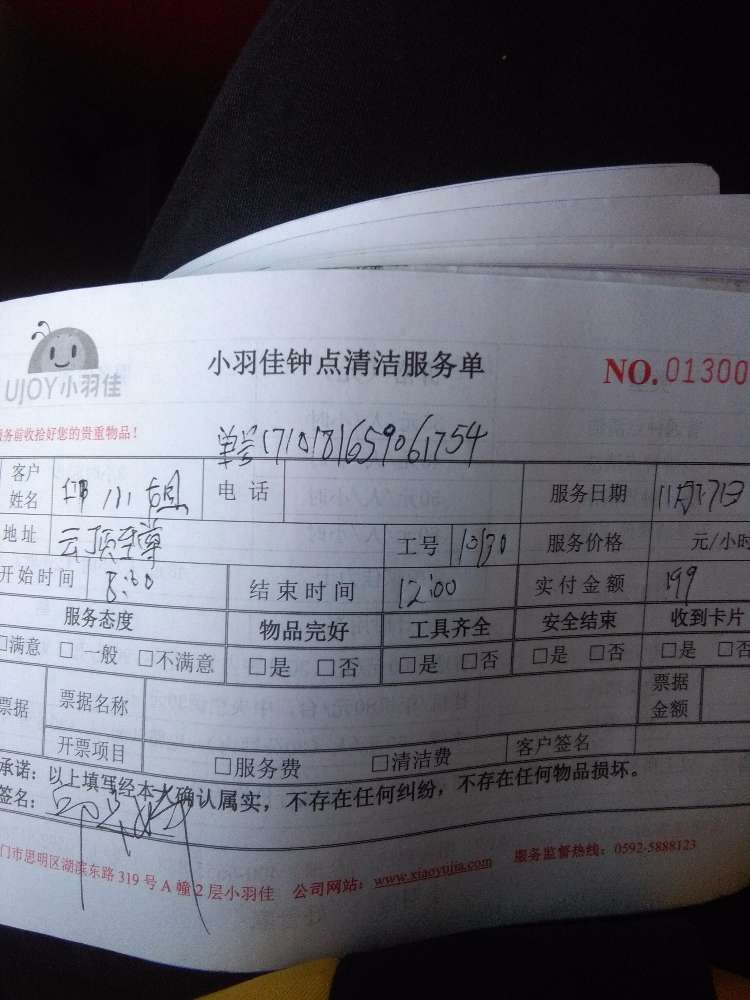 UJOY小羽佳
小羽佳钟点清洁服务单
NO. 01300
务前收拾好您的贵重物品!
单号1710181659061754
客户姓名 电话 服务日期
地址 云顶至尊 工号 服务价格 元/小时
开始时间 8:30 结束时间 12:00 实付金额 199
服务态度 物品完好 工具齐全 安全结束 收到卡片
□满意 □一般 □不满意 □是 □否 □是 □否 □是 □否 □是 □否
票据 票据名称 票据金额
开票项目 □服务费 □清洁费 客户签名
承诺:以上填写经本人确认属实,不存在任何纠纷,不存在任何物品损坏。
签名:
门市思明区湖滨东路319号A幢2层小羽佳 公司网站:www.xiaoyujia.com 服务监督热线:0592-5888123